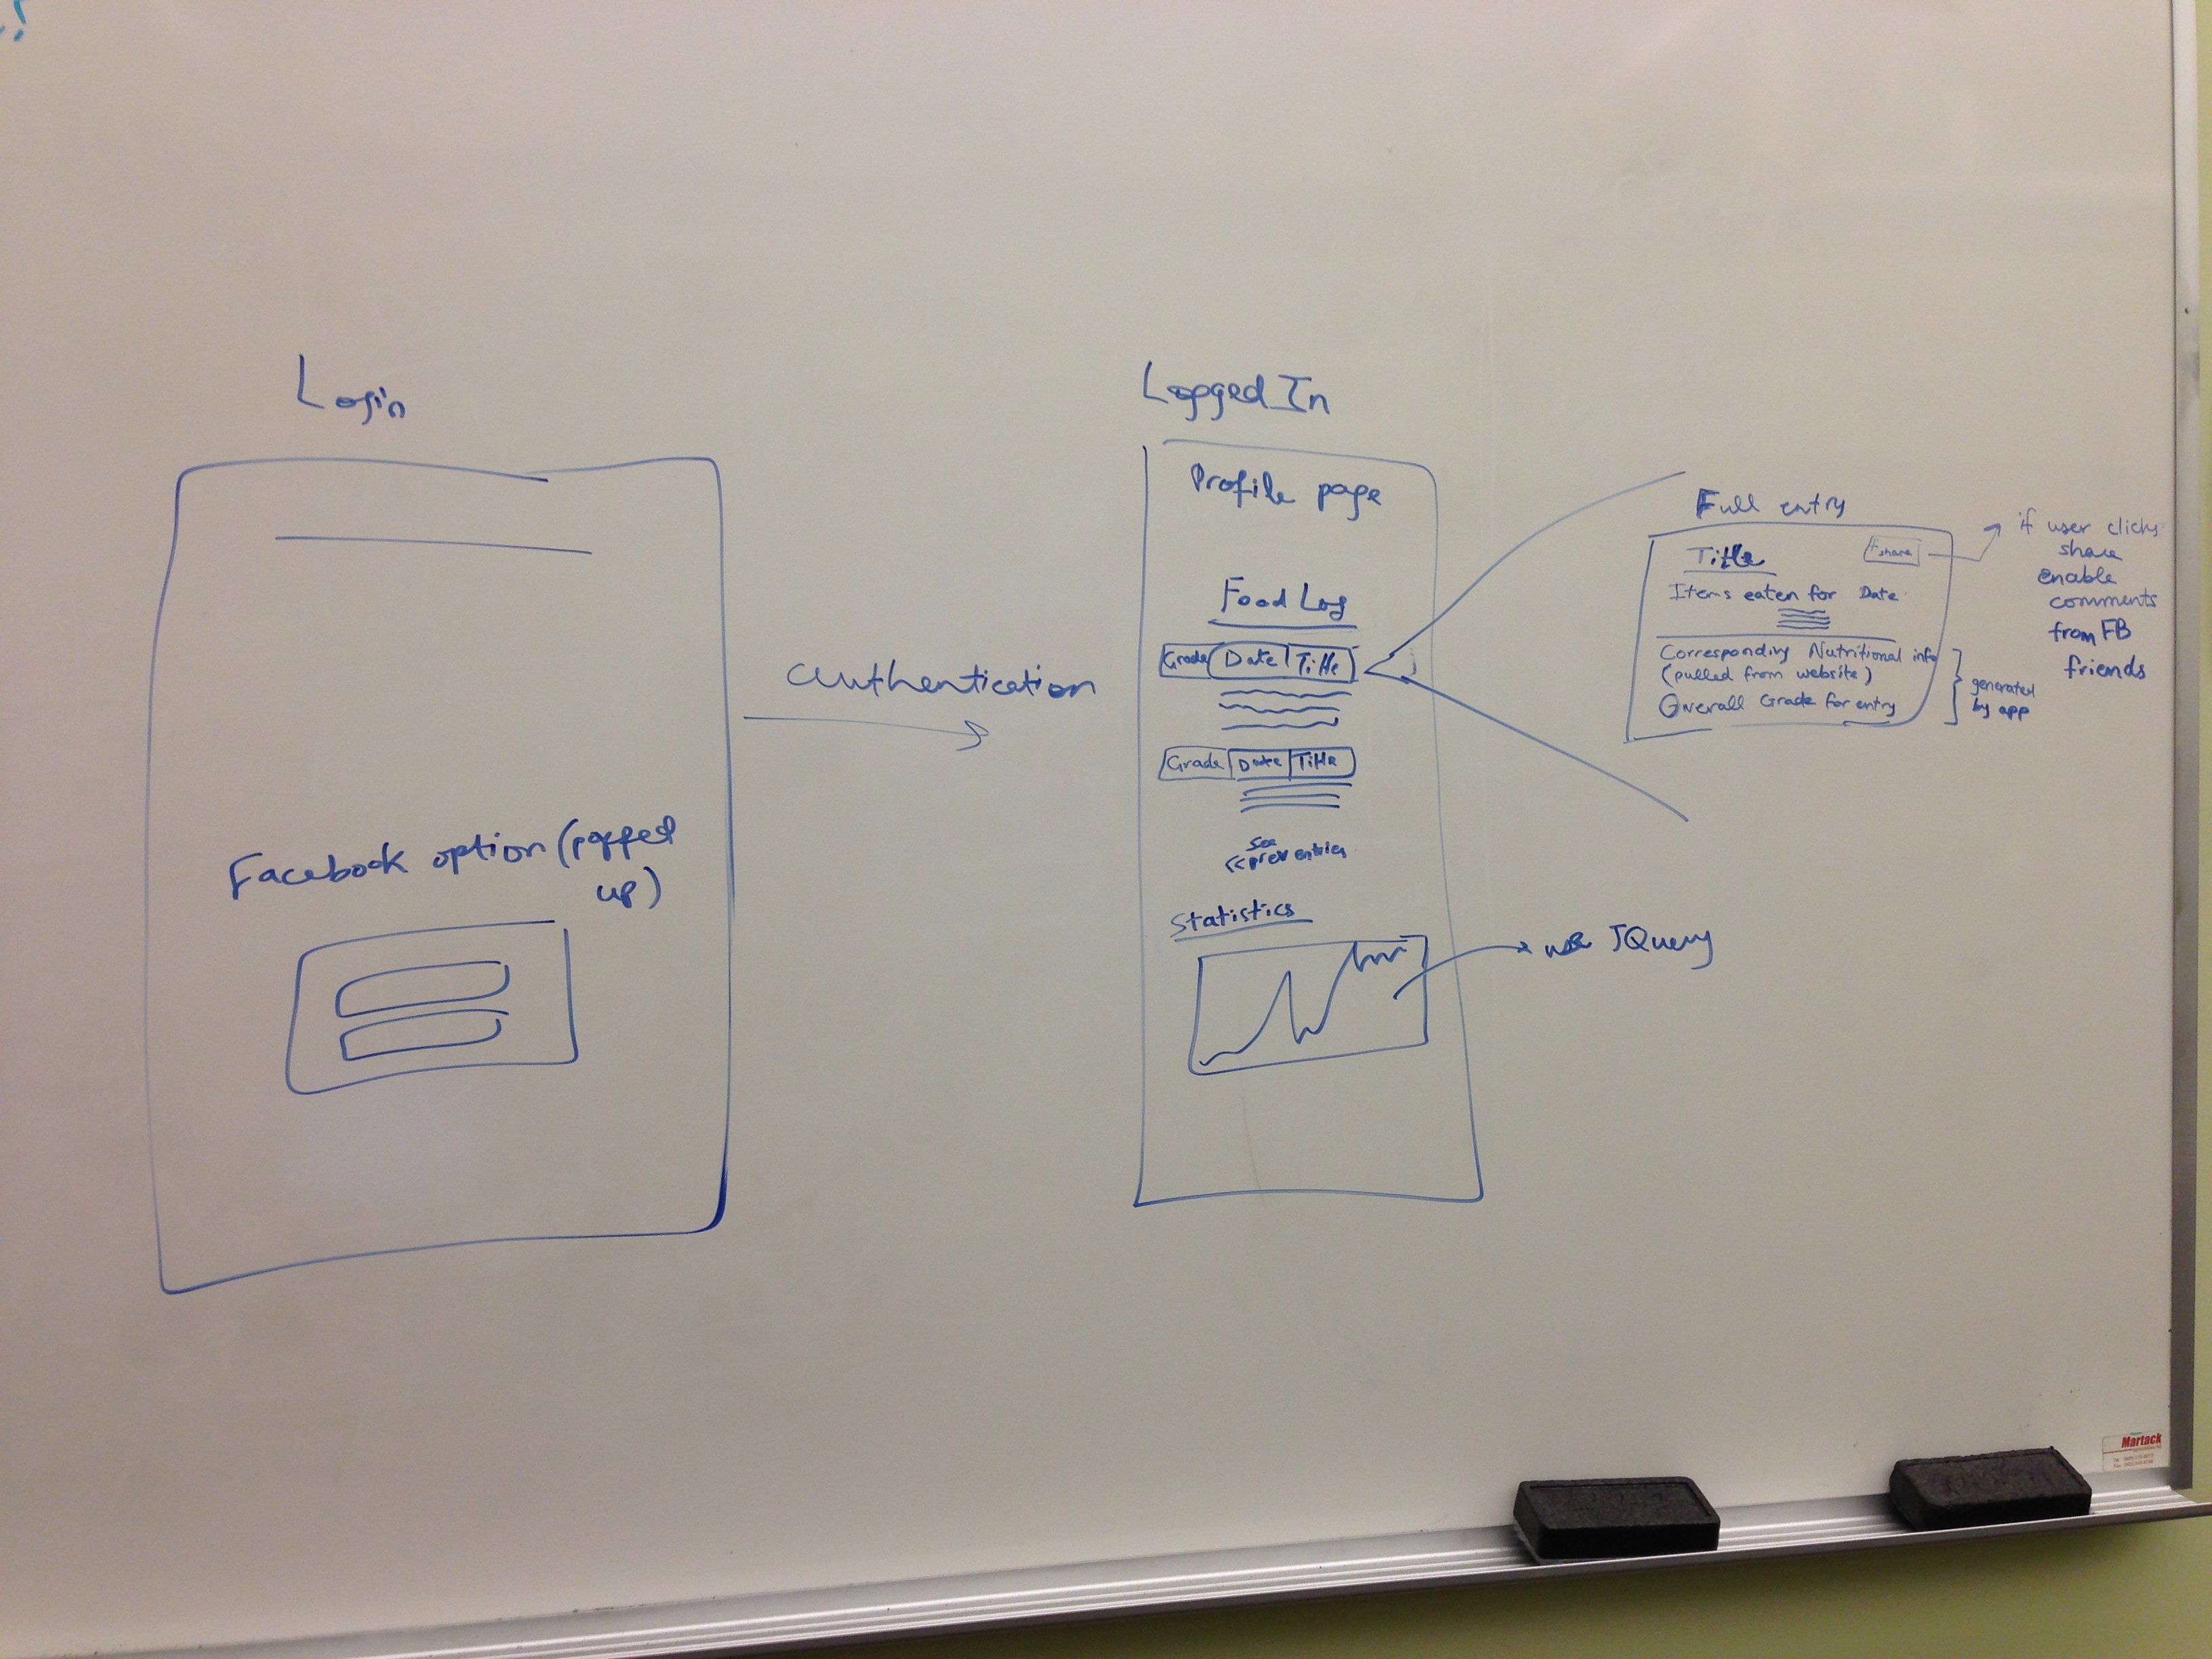 Login
Facebook option (popped
up)
authentication
Logged In
Profile page
Food Log
Grade Date Title
Grade Date Title
see
<<prev entries
Statistics
use JQuery
Full entry
Title
+share
Items eaten for Date
Corresponding Nutritional info
(pulled from website)
Overall Grade for entry
generated
by app
if user clicks
share
enable
comments
from FB
friends
Martack